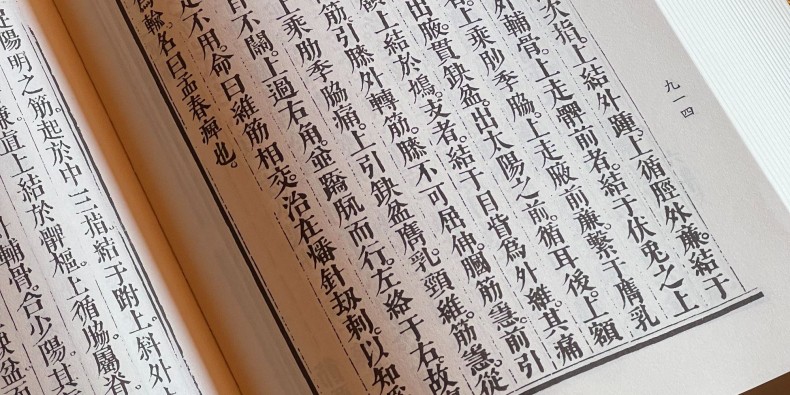 九一四
指。上結外踝。上循脛外廉。結于
外輔骨。上走髀。前者。結于伏兔之上
上乘肋季脇。上走腋前廉。繫于膺乳
出腋。貫缺盆。出太陽之前。循耳後。上額
上結於鳩。支者。結于目眥爲外維。其痛
筋。引膝外轉筋。膝不可屈伸。膕筋急。前引
上乘肋季脇痛。上引缺盆膺乳頸。維筋急。從
目不關。上過右角。並蹻脈而行。左絡于右。故
足不用。命曰維筋相交。治在燔針劫刺。以知
爲輸。名曰孟春痺也。
足陽明之筋。起於中三指。結于跗上。斜外
廉。直上結於髀樞。上循脇屬脊。
輔骨。合少陽。其
缺盆而